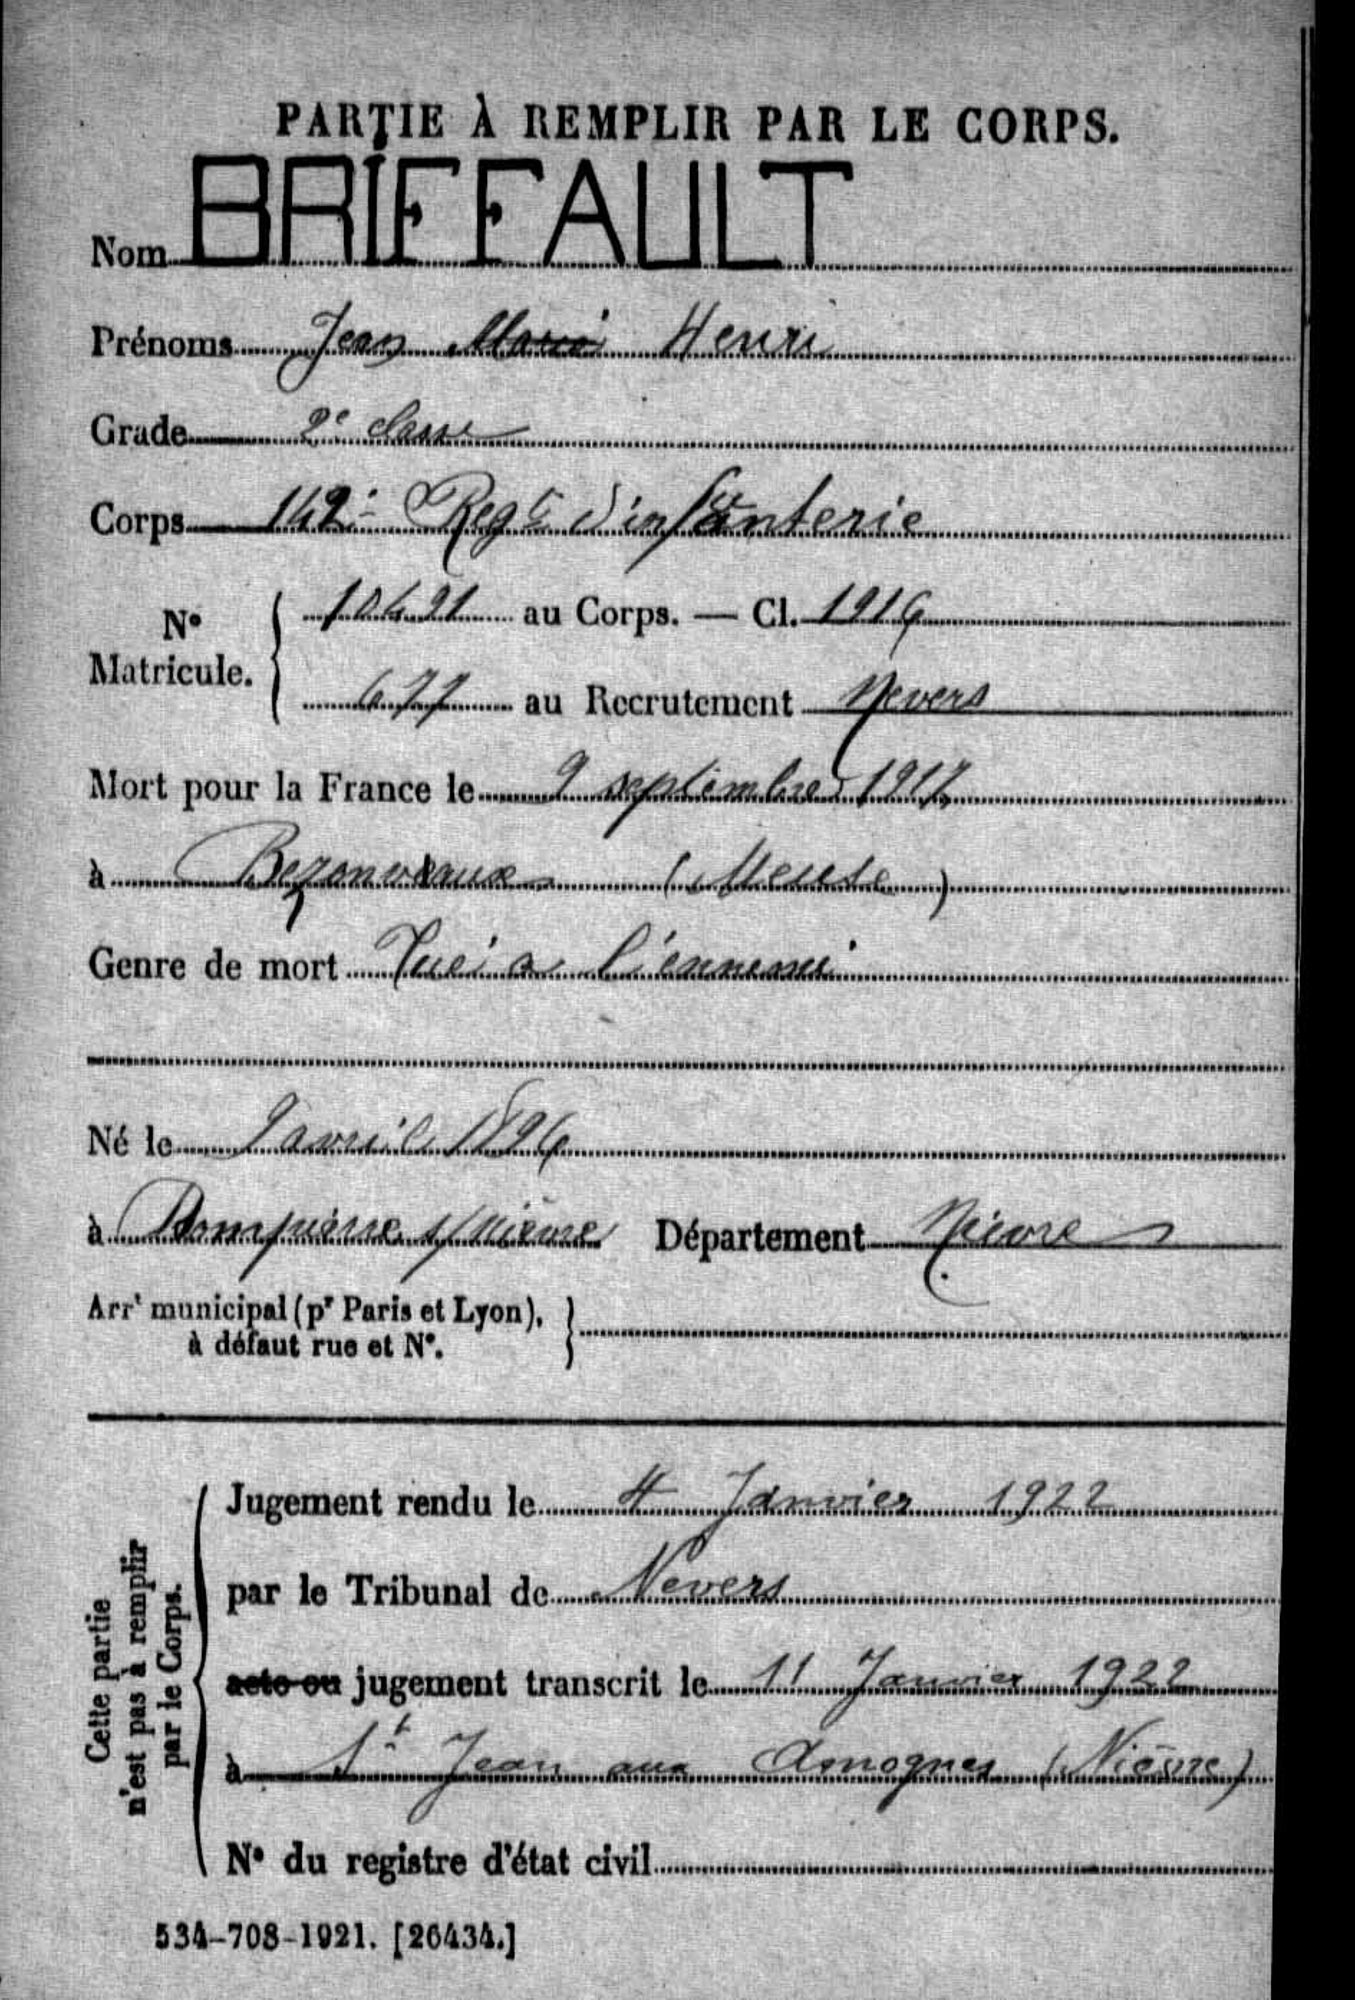 PARTIE À REMPLIR PAR LE CORPS.
Nom BRIFFAULT
Prénoms Jean Marie Henri
Grade 2e classe
Corps 142e Regt d'infanterie
No Matricule. 10491 au Corps. — Cl. 1916
677 au Recrutement Nevers
Mort pour la France le 9 septembre 1917
à Bezonvaux (Meuse)
Genre de mort Tué à l'ennemi
Né le 9 avril 1896
à Dompierre s/ Nièvre Département Nièvre
Arrt municipal (pr Paris et Lyon),
à défaut rue et No.
Cette partie
n'est pas à remplir
par le Corps.
Jugement rendu le 4 Janvier 1922
par le Tribunal de Nevers
acte ou jugement transcrit le 11 Janvier 1922
à St Jean aux Amognes (Nièvre)
No du registre d'état civil
534-708-1921. [26434.]